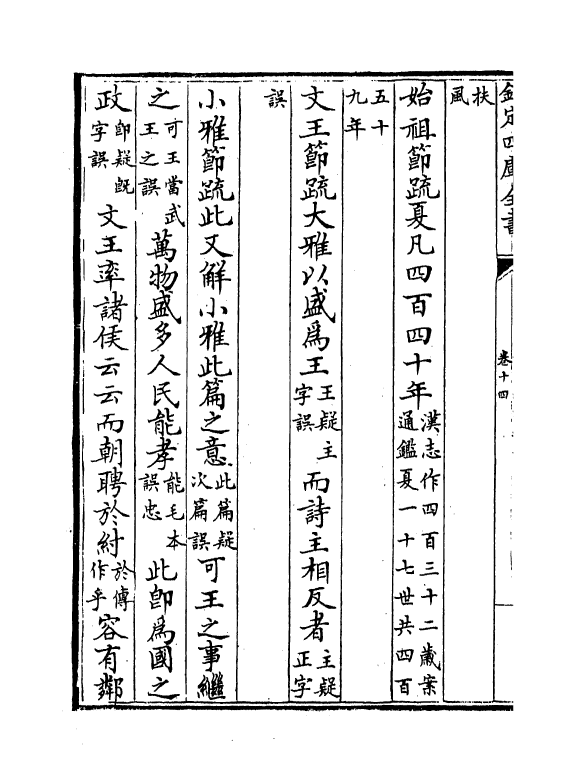 欽定四庫全書
卷十四
扶風
始祖節疏夏凡四百四十年漢志作四百三十二歲案通鑑夏一十七世共四百
五十九年
文王節疏大雅以盛爲王王疑主字誤而詩主相反者主疑正字
誤
小雅節疏此又解小雅此篇之意此篇疑次篇誤可王之事繼
之可王當武王之誤萬物盛多人民能孝能毛本誤忠此卽爲國之
政卽疑旣字誤文王率諸侯云云而朝聘於紂於傳作乎容有鄰